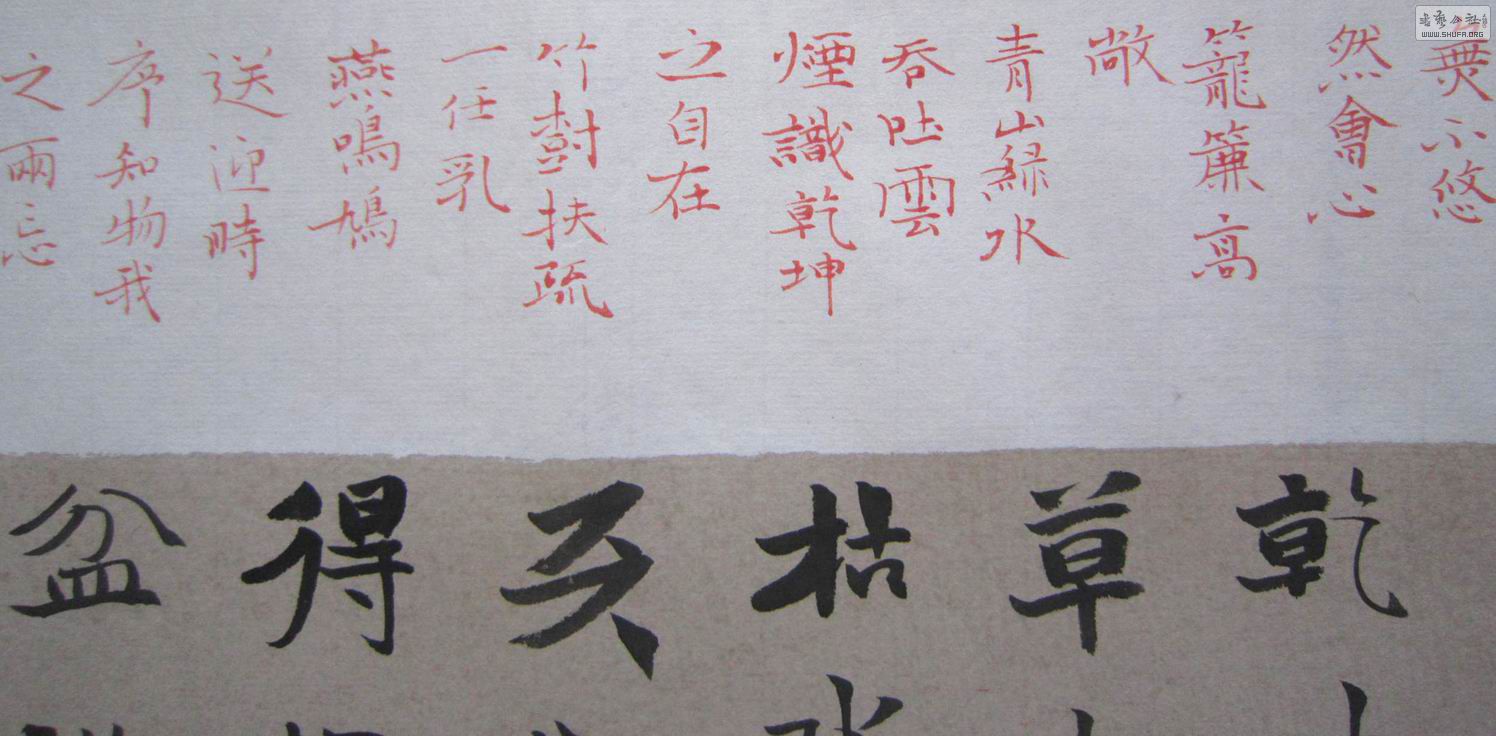 無不悠
然會心
籠簾高
敞
青山綠水
吞吐雲
煙識乾坤
之自在
竹樹扶疏
一任乳
燕鳴鳩
送迎時
序知物我
之兩忘
乾
草
枯
得
盆
書藝公社
WWW.SHUFA.ORG